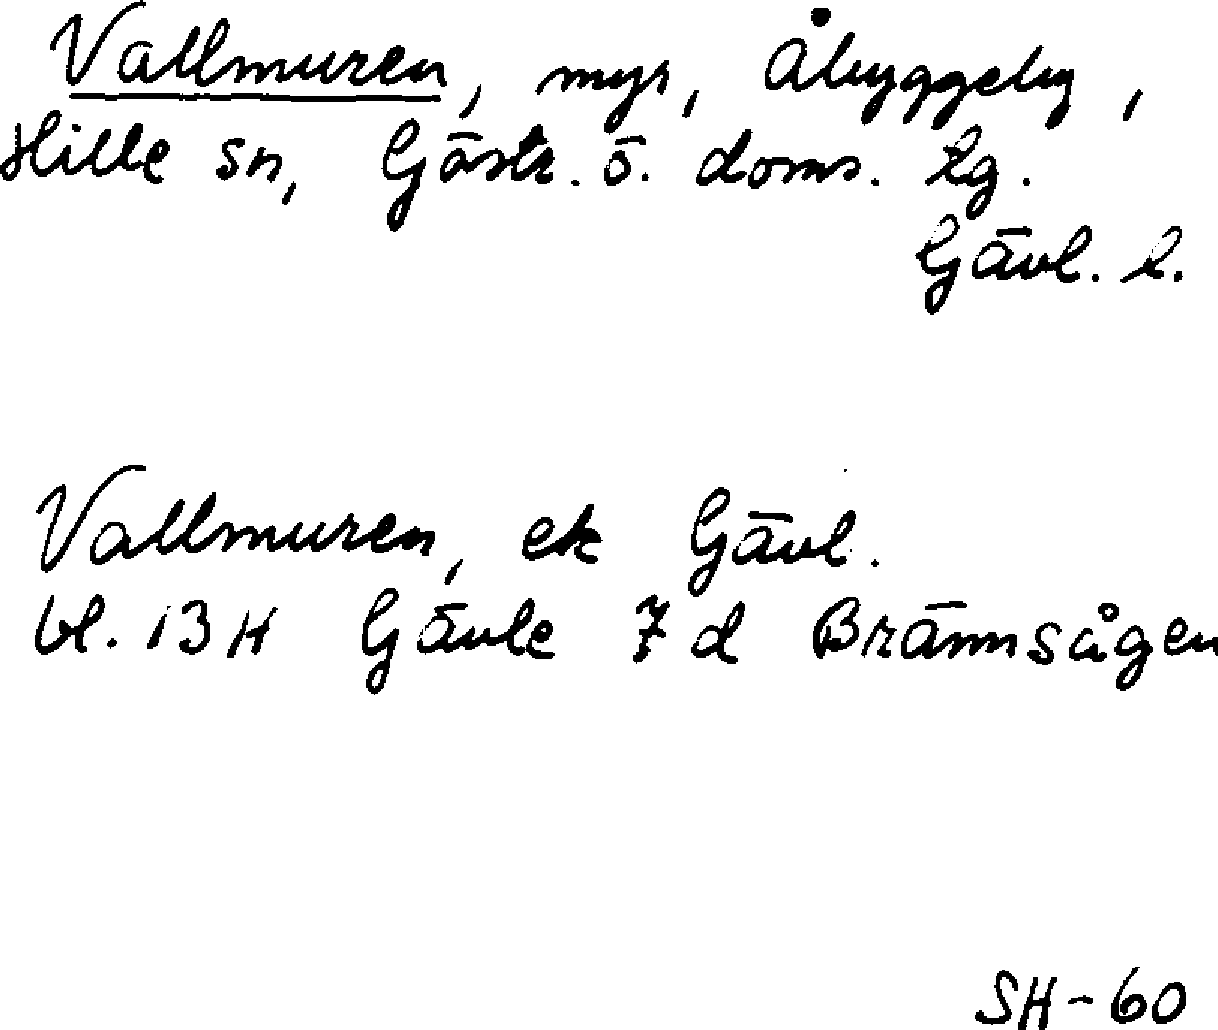 Vallmuren, myr, Åbyggeby,
Hille sn, Gästr. ö. doms. tg.
Gävl. l.
Vallmuren, ek Gävl.
bl. 13H Gävle 7d Brännsågen
SH-60